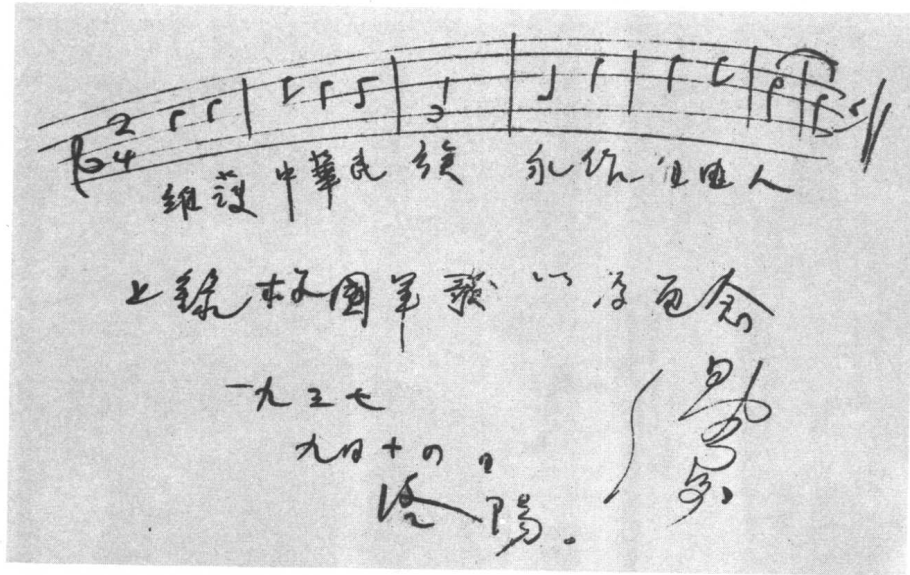 2
4
維護中華民族 永作自由人
上錄救國軍歌以为紀念
一九三七
九月十四日
洛陽。